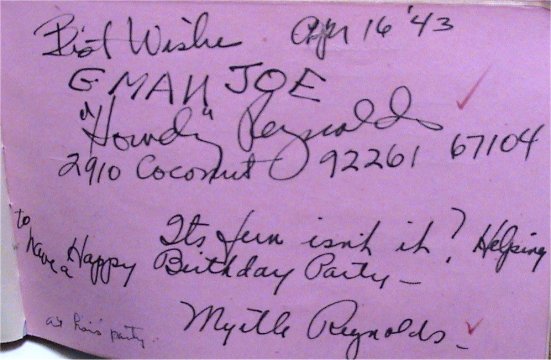 Best Wishes Apr 16 '43
G MAN JOE
"Howdy" Reynolds
2910 Coconut 92261 67104
Its fun isn't it? Helping
to have a Happy Birthday Party –
Myrtle Reynolds –
party